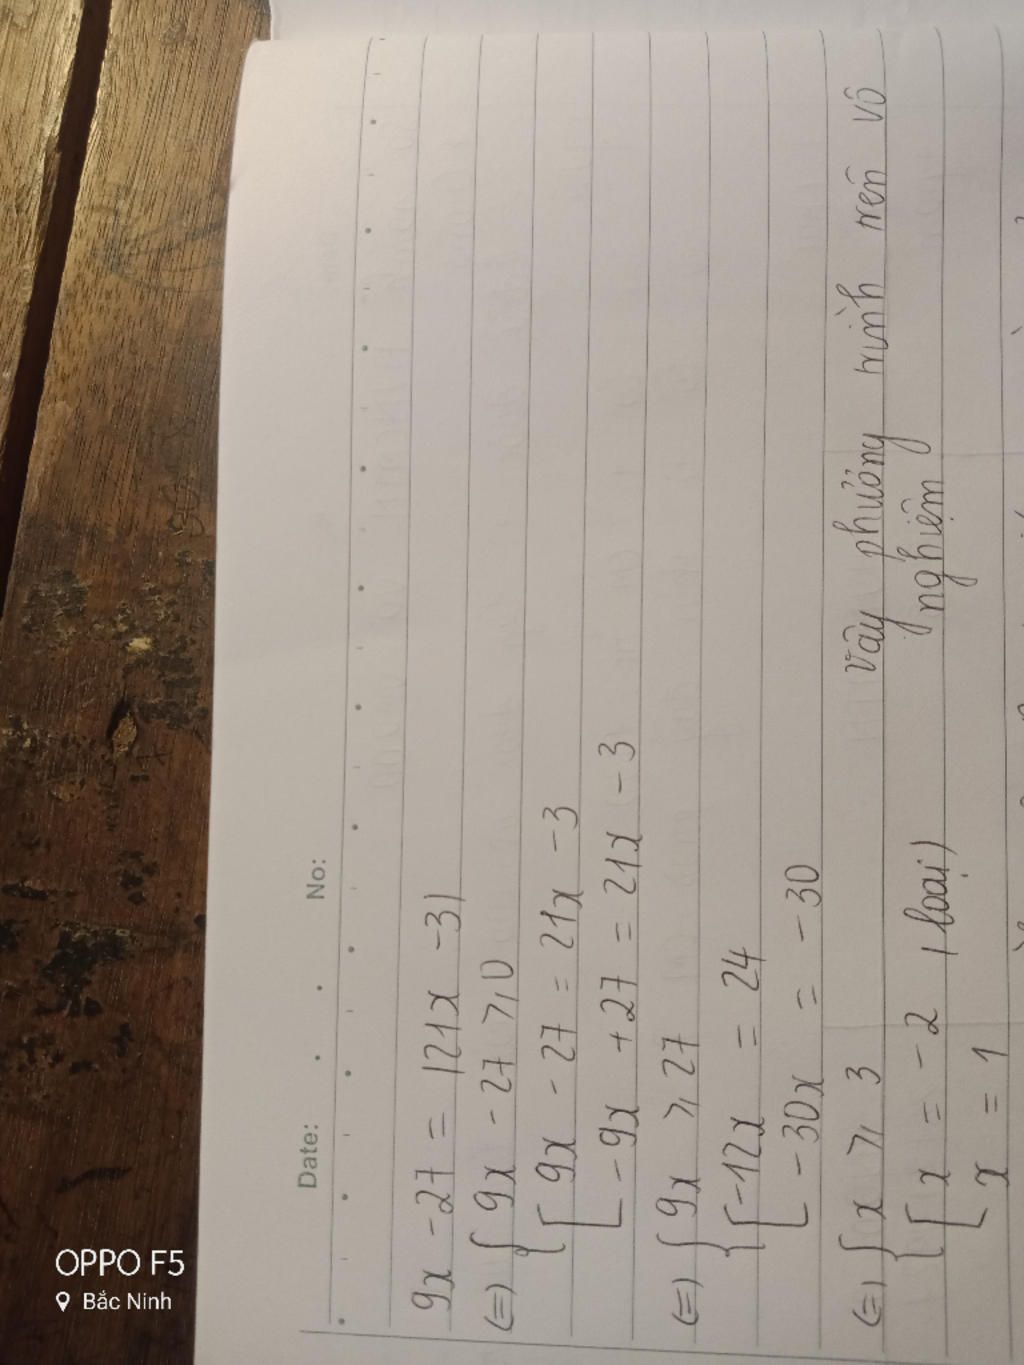 Date: No:
9x - 27 = |21x - 3|
(=) { 9x - 27 ⩾ 0
{ [ 9x - 27 = 21x - 3
[ - 9x + 27 = 21x - 3
(=) { 9x ⩾ 27
{ [ -12x = 24
[ - 30x = - 30
(=) { x ⩾ 3 Vậy phương trình trên vô
{ [ x = - 2 (loại) nghiệm
[ x = 1
OPPO F5
Bắc Ninh